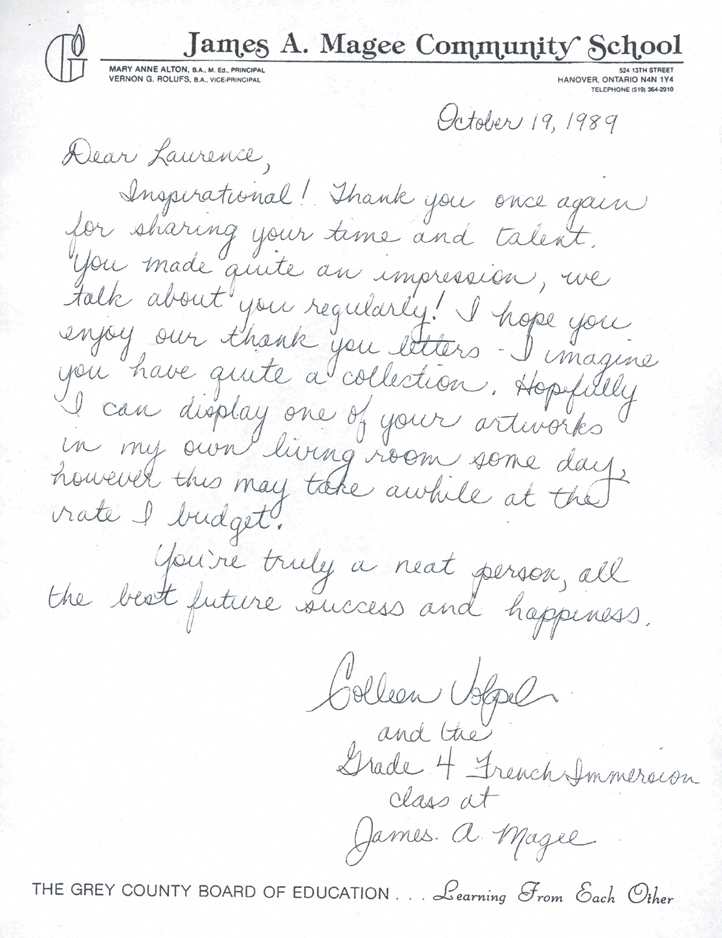 James A. Magee Community School
MARY ANNE ALTON, B.A., M. Ed., PRINCIPAL
VERNON G. ROLUFS, B.A., VICE-PRINCIPAL
524 13TH STREET
HANOVER, ONTARIO N4N 1Y4
TELEPHONE (519) 364-2910
October 19, 1989
Dear Laurence,
Inspirational! Thank you once again
for sharing your time and talent.
You made quite an impression, we
talk about you regularly! I hope you
enjoy our thank you letters - I imagine
you have quite a collection. Hopefully
I can display one of your artworks
in my own living room some day,
however this may take awhile at the
rate I budget.
You're truly a neat person, all
the best future success and happiness.
Colleen
and the
Grade 4 French Immersion
class at
James. A. Magee
THE GREY COUNTY BOARD OF EDUCATION . . . Learning From Each Other